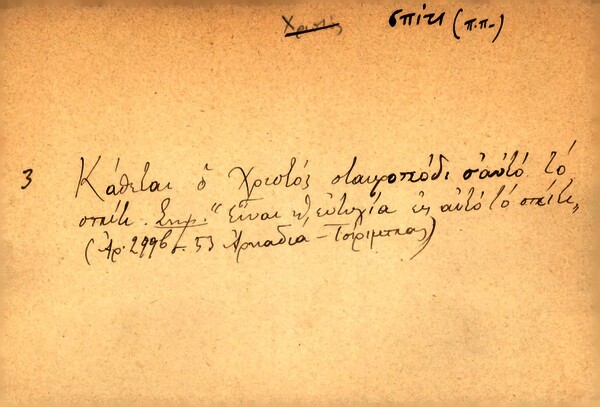 Χριστός σπίτι (π.π.)
3 Κάθεται ὁ Χριστός σταυροπόδι σ' αὐτό τό
σπίτι. Σημ. "Εἶναι εὐτυχία εἰς αὐτό τό σπίτι"
(Ἀρ. 2996 σ. 53 Ἀρκαδία - Τσίριμπας)